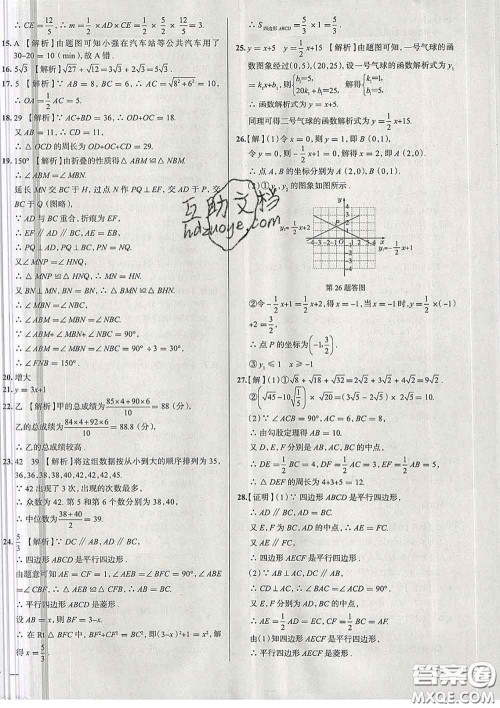 ∴ CE=12/5. ∴ m=1/2×AD×CE=1/2×5×12/5=6.
15. A 【解析】由题图可知小强在汽车站等公共汽车用了
30-20=10 (min), 故 A 错.
16. 5√3 【解析】√27+√12=3√3+2√3=5√3.
17. 5 【解析】∵ AB=8, BC=6, ∴ AC=√(8²+6²)=10,
∴ OA=1/2 AC=5.
18. 29 【解析】∵ AC+BD=36, ∴ OD+OC=18.
又 AB=11, ∴ CD=11.
∴ △OCD 的周长为 OD+OC+CD=18+11=29.
19. 150° 【解析】由折叠的性质得 △ABM≌△NBM.
延长 MN 交 BC 于 H, 过点 N 作 PQ⊥EF, 交 AD 于 P, 交
BC 于 Q (图略),
∵ AD 与 BC 重合, 折痕为 EF,
∴ EF∥AD∥BC, AE=BE=1/2 AB.
∴ PQ⊥AD, PQ⊥BC, AE=PN=BN.
又 ∠MNP=∠HNQ,
∴ △MNP≌△HNQ. ∴ MN=HN.
又 BN⊥MH, ∴ BM=BH.
∴ ∠MBN=∠NBC.
∴ ∠ABM=∠MBN=∠NBC.
又 ∠ABM+∠MBN+∠NBC=90°,
∴ ∠ABM=∠MBN=∠NBC=90°÷3=30°.
∴ ∠FNB=180°-∠NBC=150°.
20. 增大
21. y=3x+1
22. 乙 【解析】甲的总成绩为(85×4+90×6)/10=88(分),
乙的总成绩为(84×4+92×6)/10=88.8(分),
∴ 乙的总成绩较高.
23. 42 39 【解析】将这组数据按从小到大的顺序排列为 35,
36,38,38,38,40,42,42,42,42,45,45,
∵ 42 出现了 3 次, 出现的次数最多,
∴ 众数为 42. 第 5 和第 6 个数分别为 38,40,
∴ 中位数为(38+40)/2=39.
24. 5/3 【解析】∵ DC∥AB, AD∥BC,
∴ 四边形 ABCD 是平行四边形.
由题意可知 AE=CF=1, ∠AEB=∠BFC=90°, ∠ABE
=∠CBF, ∴ △ABE≌△CBF. ∴ AB=CB.
∴ 平行四边形 ABCD 是菱形.
设 AB=x, 则 BF=3-x.
∴ 在 Rt△BFC 中, BF²+FC²=BC², 即(3-x)²+1²=x², 解
得 x=5/3.
∴ S四边形ABCD=5/3×1=5/3.
25. y=x+5 y=1/2 x+15 【解析】由题图可知, 一号气球的函
数图象经过(0,5),(20,25), 设一号气球的函数解析式为
y=k₁x+b₁, 则{b₁=5, 20k₁+b₁=25, 解得{k₁=1, b₁=5,
∴ 函数解析式为 y=x+5.
同理可得二号气球的函数解析式为 y=1/2 x+15.
26. 【解】(1)令 x=0, 则 y=1, 即 B(0,1).
令 y=0, 则-1/2 x+1=0, 解得 x=2, 即 A(2,0).
∴ 点 A, B 的坐标分别为 A(2,0), B(0,1).
(2)① y₁, y₂ 的图象如图所示.
第 26 题答图
②令-1/2 x+1=1/2 x+2, 得 x=-1, 当 x=-1 时, y=-1/2×(-1)
+1=3/2,
∴ 点 P 的坐标为(-1,3/2).
③ y₁≤1 x≥-1
27. 【解】(1)① √8+√18+√32=2√2+3√2+4√2=9√2.
(2)∵ ∠ACB=90°, AC=6, BC=8,
∴ 由勾股定理得 AB=10.
∵ D, E, F 分别是 AB, AC, BC 的中点,
∴ DE=1/2 BC=4, EF=1/2 AB=5, DF=1/2 AC=3,
∴ △DEF 的周长为 4+3+5=12.
28. 【证明】(1)∵ 四边形 ABCD 是平行四边形,
∴ AD=BC, AD∥BC.
又 E, F 为 BC, AD 的中点,
∴ AF∥EC, AF=EC.
∴ 四边形 AECF 是平行四边形.
(2)∵ AB⊥AC, ∴ ∠BAC=90°.
又 E 为 BC 的中点, ∴ AE=1/2 BC=CE.
∵ 四边形 ABCD 是平行四边形, ∴ AD=BC.
又 E, F 分别为 AD, BC 的中点,
∴ AE=1/2 BC=1/2 AD=AF.
由(1)知四边形 AECF 是平行四边形,
∴ 平行四边形 AECF 是菱形.
互助文档
hdzuoye.com
答案圈
MXQE.COM